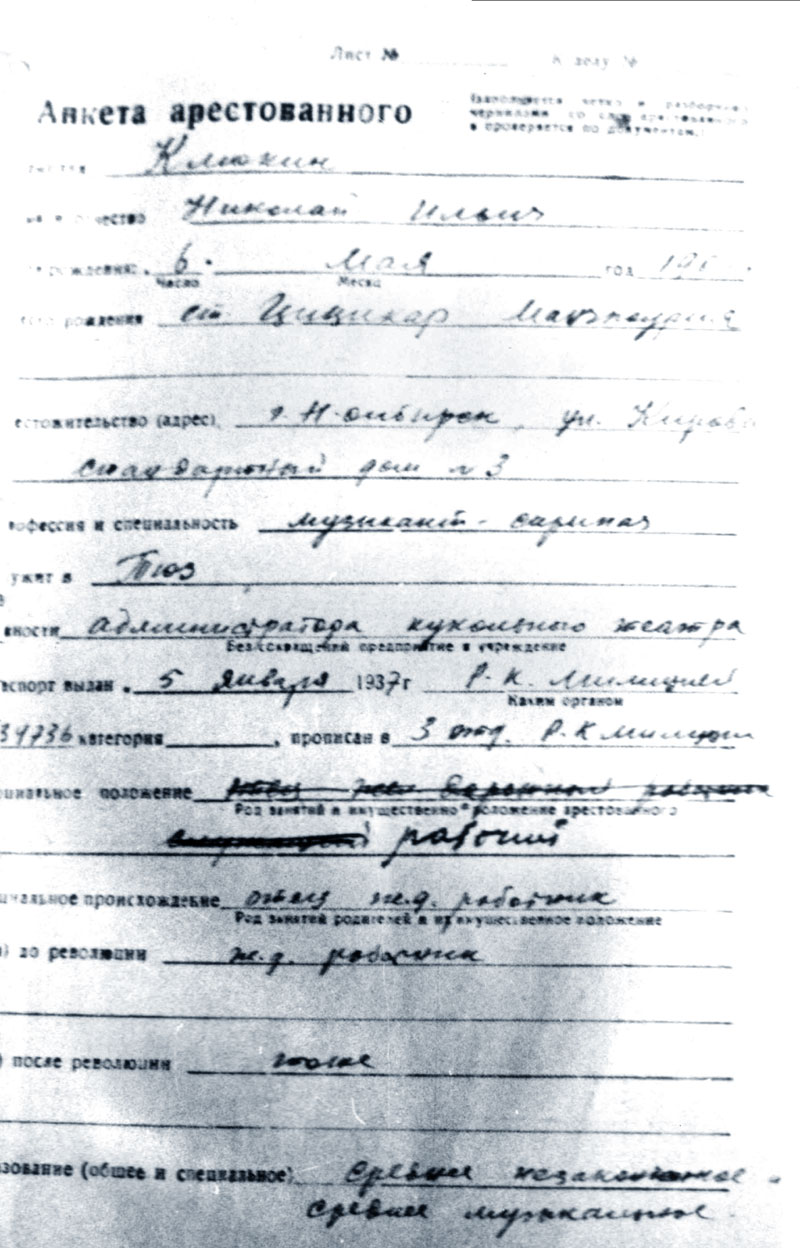 Лист № К делу №
Анкета арестованного
Заполняется четко и разборчиво
чернилами со слов арестованного
и проверяется по документам.
Клюкин
чество Николай Ильич
рождения: 6. Мая год
Число Месяц
рождения ст. Цицикар Манчжурия
естожительство (адрес) г. Н-сибирск, ул. Кирова
стандартный дом № 3
рофессия и специальность музыкант-скрипач
ужит в Тюз
ности администратора кукольного театра
Без сокращений предприятие и учреждение
спорт выдан 5 января 1937 г Р.К. Милицией
Каким органом
34736 категория , прописан в 3 отд. Р.К Милиции
циальное положение
Род занятий и имущественно положение арестованного
рабочий
циальное происхождение отец ж.д. работник
Род занятий родителей и их имущественное положение
) до революции ж.д. работник
) после революции тоже
зование (общее и специальное) Среднее незаконченное
среднее музыкальное